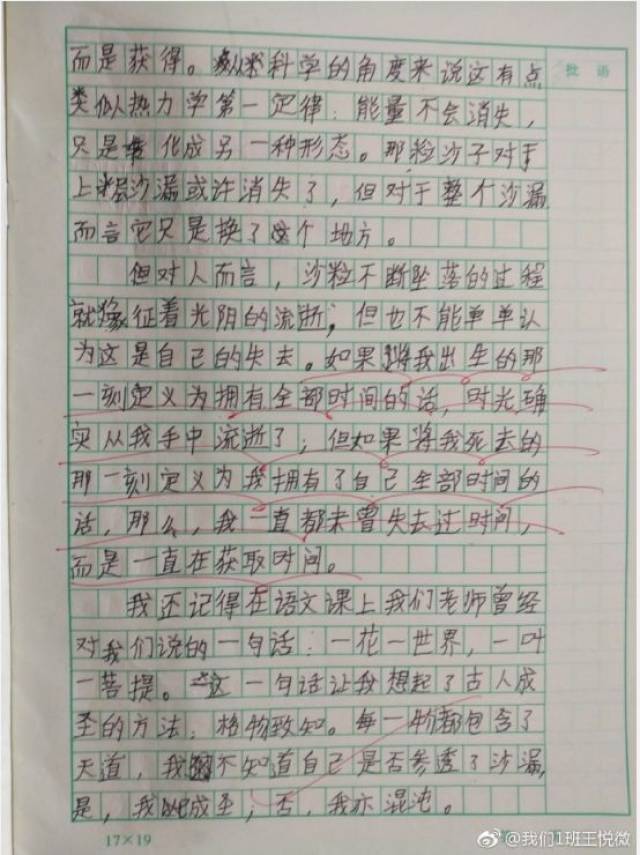 而是获得。纵从科学的角度来说这有点
批语
类似热力学第一定律：能量不会消失，
只是转化成另一种形态。那粒沙子对于
上层沙漏或许消失了，但对于整个沙漏
而言它只是换了个地方。
但对人而言，沙粒不断坠落的过程
就像征着光阴的流逝；但也不能单单认
为这是自己的失去。如果将我出生的那
一刻定义为拥有全部时间的话，时光确
实从我手中流逝了；但如果将我死去的
那一刻定义为我拥有了自己全部时间的
话，那么，我一直都未曾失去过时间，
而是一直在获取时间。
我还记得在语文课上我们老师曾经
对我们说的一句话：一花一世界，一叶
一菩提。这一句话让我想起了古人成
圣的方法：格物致知。每一物都包含了
天道，我不知道自己是否参透了沙漏，
是，我成圣；否，我亦混沌。
17×19
@我们1班王悦微